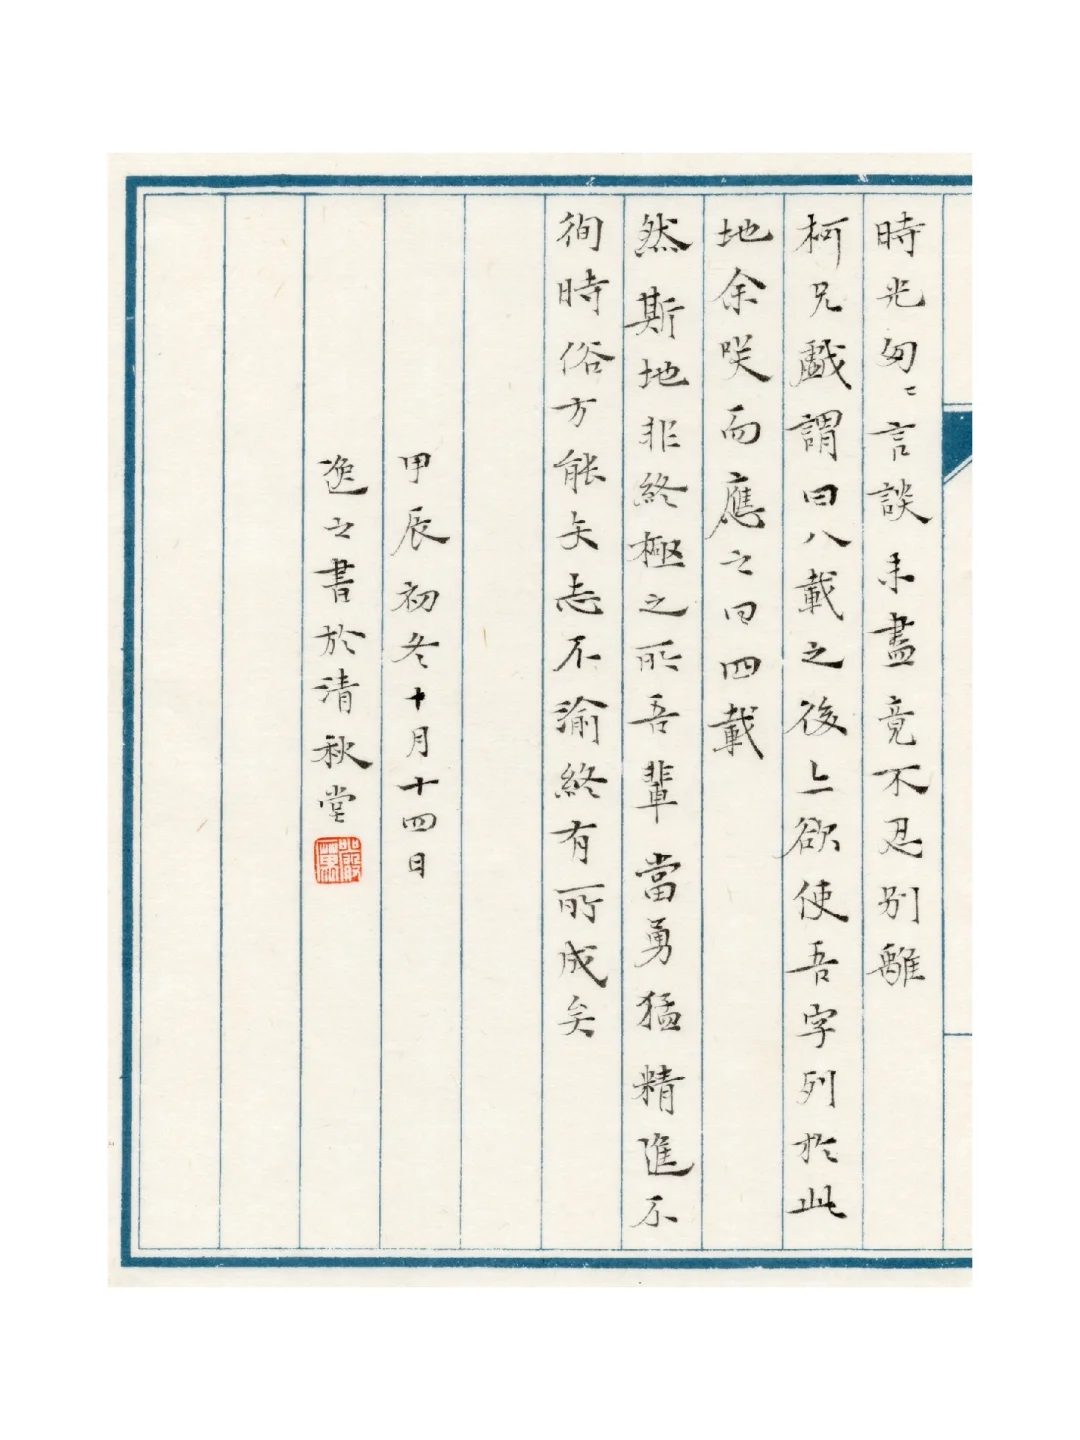 時光匆〻言談未盡竟不忍別離
柯兄戲謂曰八載之後上欲使吾字列於此
地余咲而應之曰四載
然斯地非終極之所吾輩當勇猛精進不
徇時俗方能矣志不渝終有所成矣
甲辰初冬十月十四日
逸之書於清秋堂